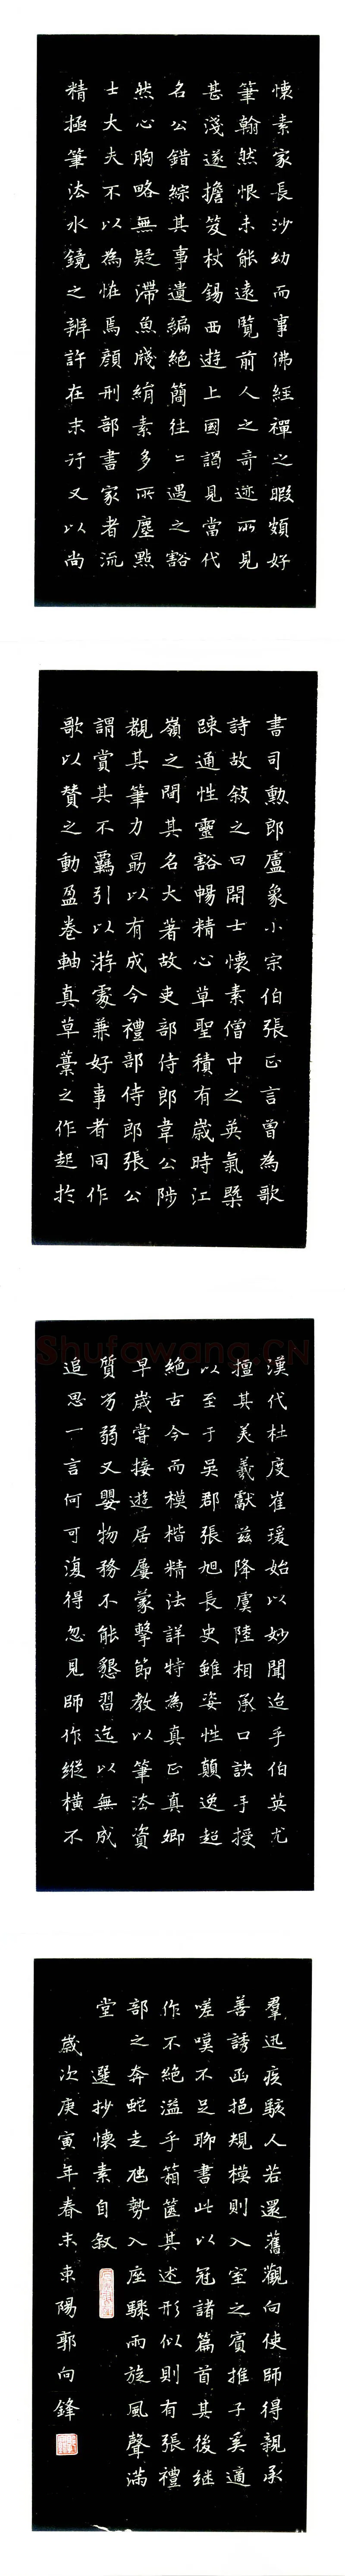 懷素家長沙幼而事佛經禪之暇頗好
筆翰然恨未能遠覽前人之奇迹所見
甚淺遂擔笈杖錫西遊上國謁見當代
名公錯綜其事遺編絕簡往〻遇之豁
然心胸略無疑滯魚牋絹素多所塵點
士大夫不以為恠焉顏刑部書家者流
精極筆法水鏡之辨許在末行又以尚
書司勳郎盧象小宗伯張正言曾為歌
詩故敘之曰開士懷素僧中之英氣槩
疎通性靈豁暢精心草聖積有歲時江
嶺之間其名大著故吏部侍郎韋公陟
覩其筆力勗以有成今禮部侍郎張公
謂賞其不羈引以游處兼好事者同作
歌以贊之動盈卷軸真草藁之作起於
漢代杜度崔瑗始以妙聞迨乎伯英尤
擅其美羲獻茲降虞陸相承口訣手授
以至于吳郡張旭長史雖姿性顛逸超
絕古今而模楷精法詳特為真正真卿
早歲嘗接遊居屢蒙擊節教以筆法資
質劣弱又嬰物務不能懇習迄以無成
追思一言何可復得忽見師作縱橫不
羣迅疾駭人若還舊觀向使師得親承
善誘函挹規模則入室之賓推子奚適
嗟嘆不足聊書此以冠諸篇首其後繼
作不絕溢乎箱篋其述形似則有張禮
部之奔蛇走虺勢入座驟雨旋風聲滿
堂 選抄懷素自敘
歲次庚寅年春末東陽郭向鋒
Shufawang.CN